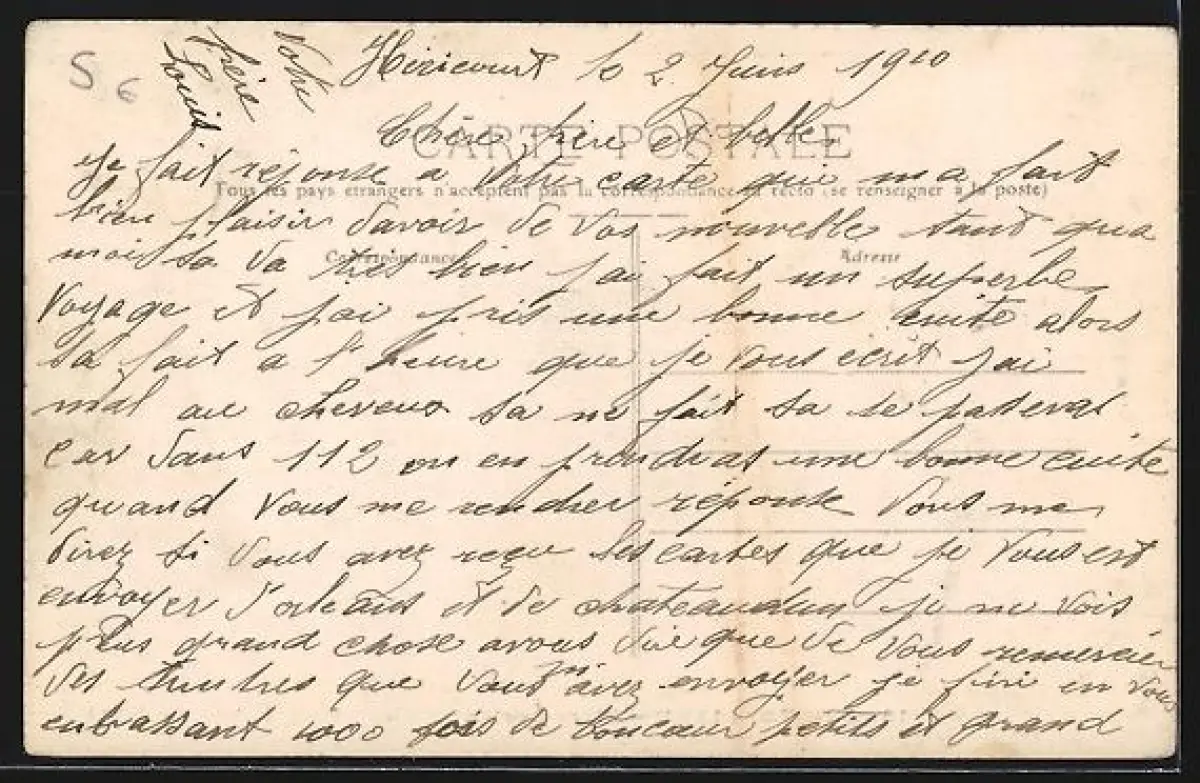 S 6
Votre
frère
Louis
Héricourt le 2 Juin 1910
CARTE POSTALE
Chère frère et belle
Tous les pays étrangers n'acceptent pas la correspondance au recto (se renseigner à la poste)
Je fait réponse a votre carte que m'a fait
bien plaisir davoir de vos nouvelle tant qua
Correspondance
Adresse
moi sa va très bien j'ai fait un superbe
voyage et j'ai pris une bonne cuite alors
sa fait a l'heure que je vous écrit j'ai
mal au cheveux sa ne fait sa se passeras
car dans 112 on en prendras une bonne cuite
quand vous me rendrer réponse vous me
direz si vous avez reçu les cartes que je vous est
envoyer d'orleans et de chateaudun je ne vois
plus grand chose avous dire que de vous remercier
des timbres que vous m'avez envoyer je fini en vous
enbrassant 1000 fois de toucœur petits et grand